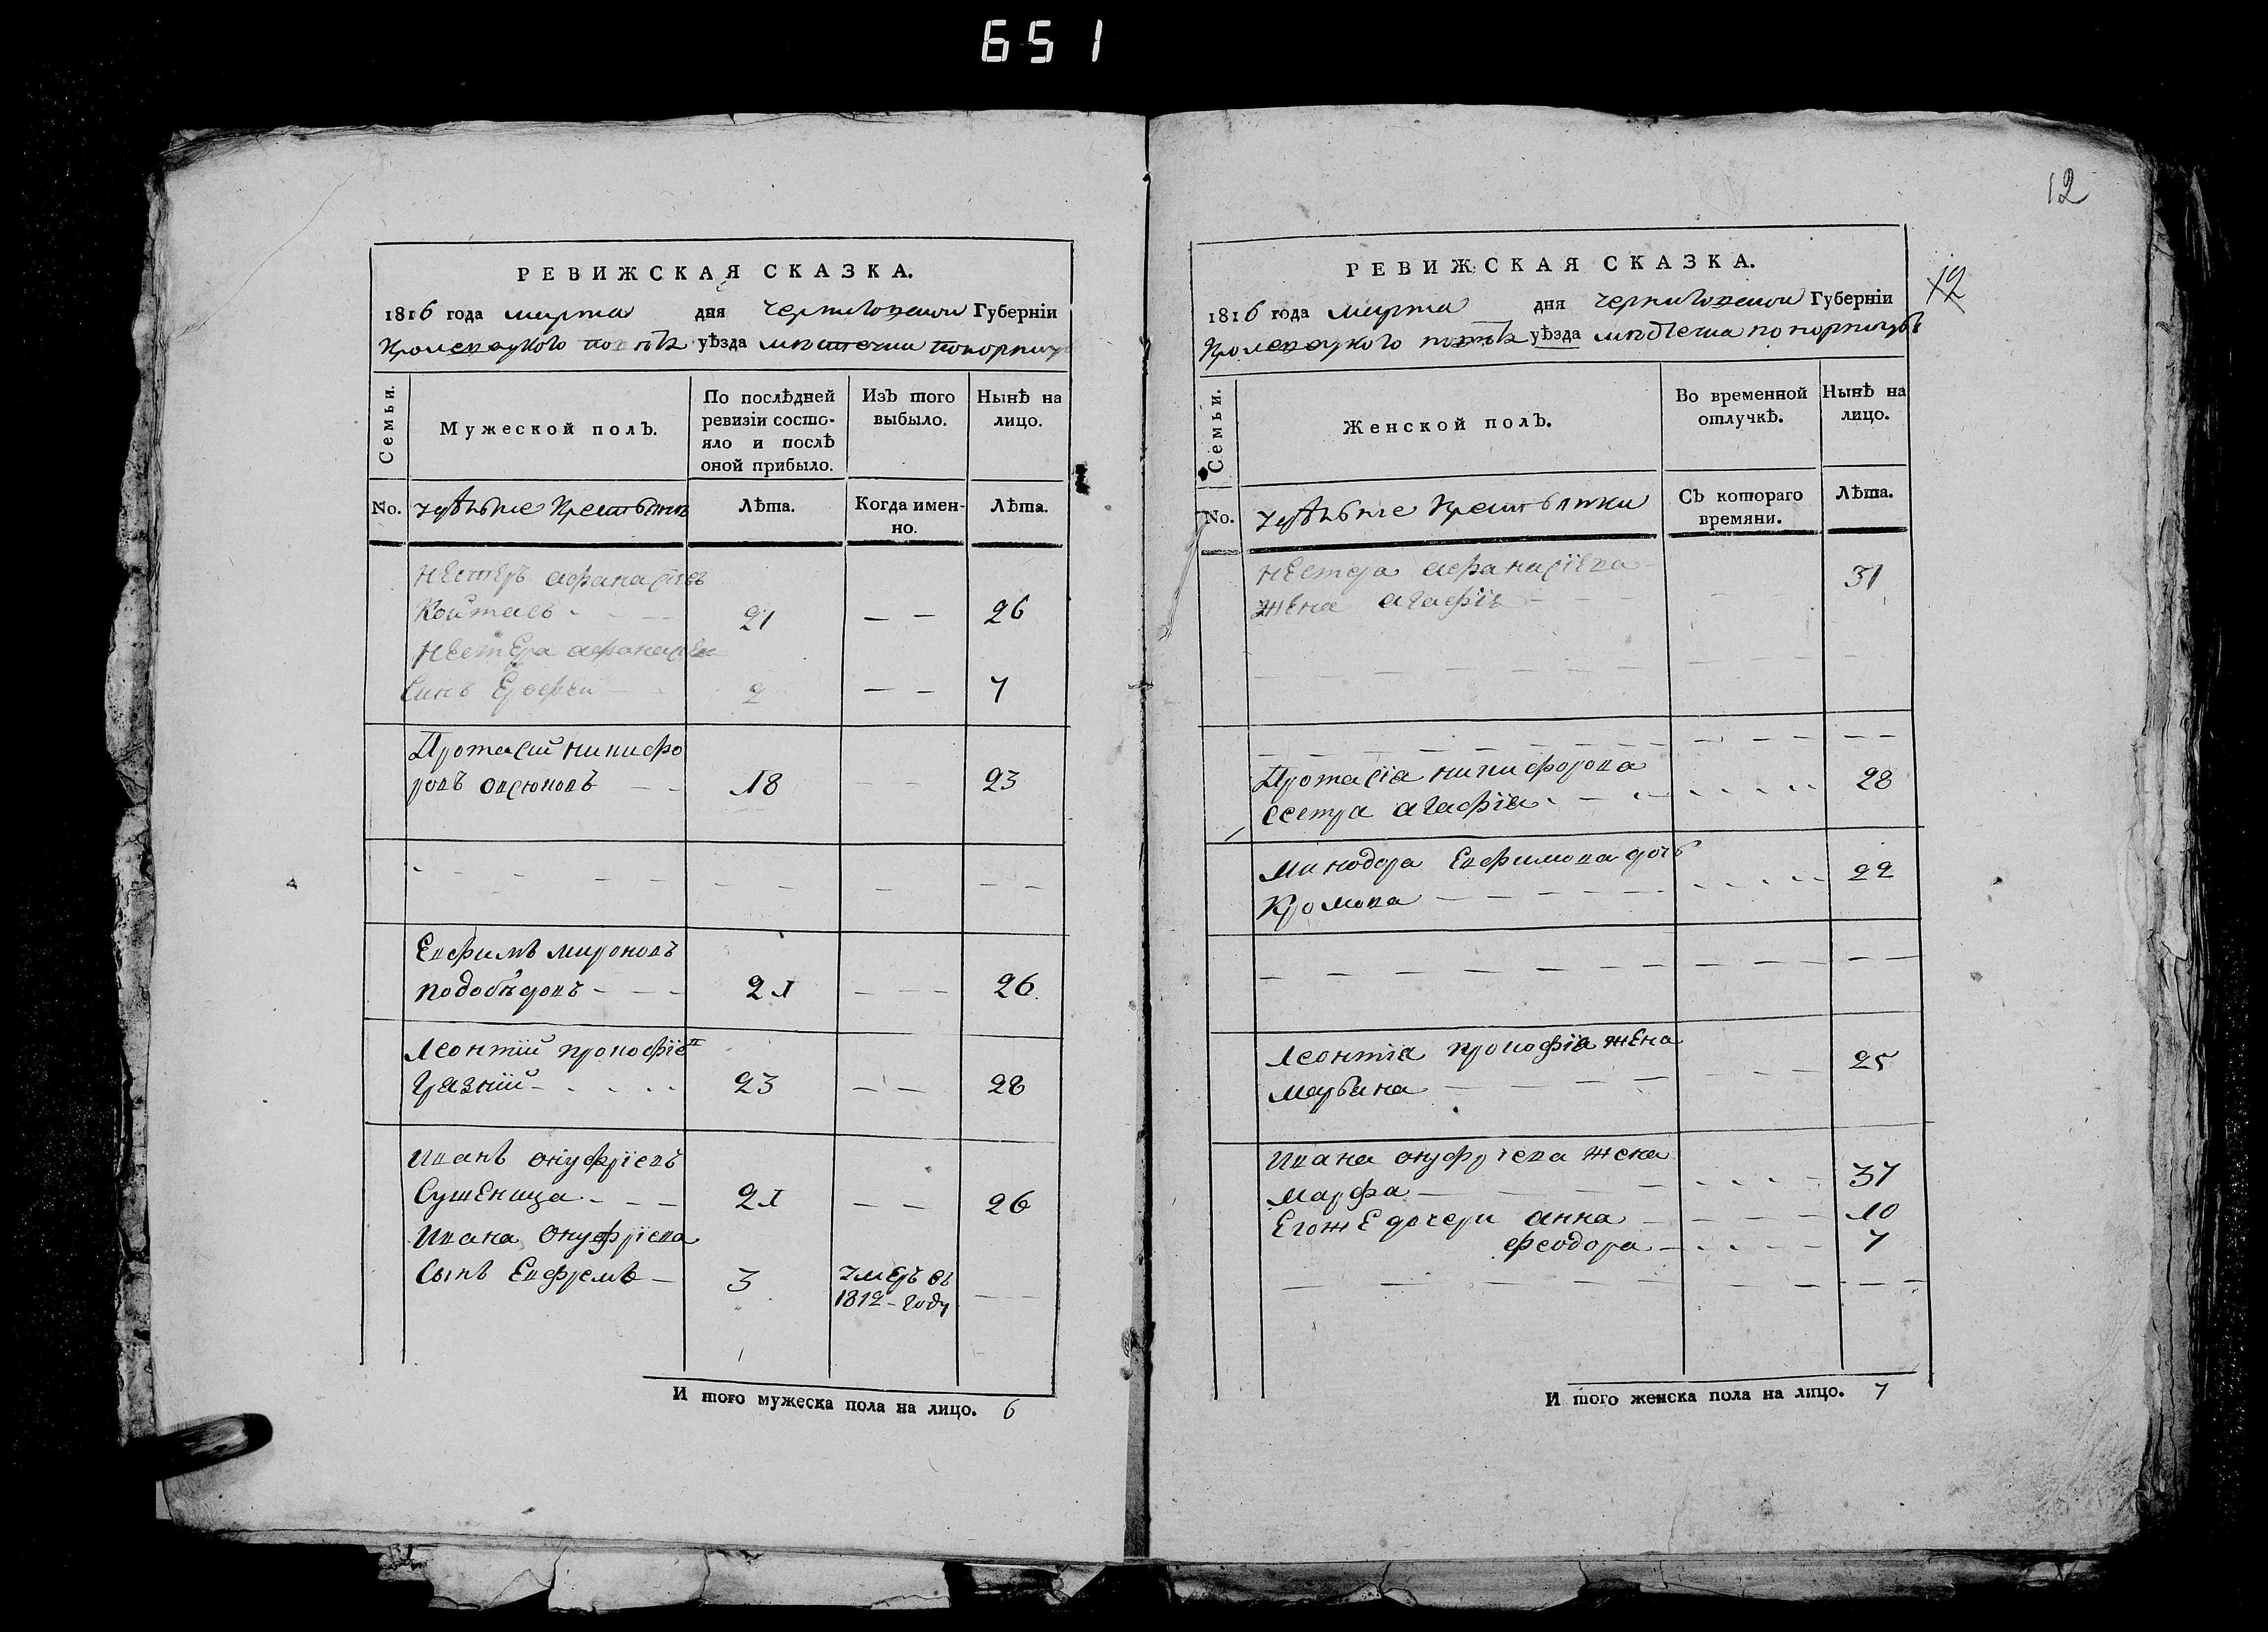 651
12
РЕВИЖСКАЯ СКАЗКА.
1816 года марта дня черниговской Губерніи
Кролевецкого повѣта уѣзда мѣстечка понорницы
Семьи.
Мужеской полЪ.
По послѣдней ревизіи состояло и послѣ оной прибыло.
ИзЪ того выбыло.
НынѣЪ на лицо.
No.
Лѣта.
Когда именно.
Лѣта.
нестеръ афанасіевъ
21 — — 26
нестера афанасіева
Синъ Ерофей 2 — — 7
Протасій никифо
ровъ овсюковъ 18 — — 23
Евфимъ мироновъ
подобѣдовъ 21 — — 26
Леонтій прокофіев
Грязній 23 — — 28
Иванъ онуфріевъ
Сушеница 21 — — 26
Ивана Онуфріева
Сынъ Евфремъ 3 умеръ въ
1812 году
И того мужеска пола на лицо. 6
РЕВИЖСКАЯ СКАЗКА.
12
1816 года марта дня черниговской Губерніи
Кролевецкого повѣта уѣзда мѣстечка понорницѣ
Семьи.
Женской полЪ.
Во временной отлучкѣ.
Нынѣ на лицо.
No.
СЪ котораго времяни.
Лѣта.
нестера афанасіева
жена агафія 31
Протасія никифорова
сестра агафія 28
Минодора Евфимова дочь
Кромова 22
Леонтія прокофія жена
марьяна 25
Ивана онуфріева жена
марфа 37
Егожъ дочери анна 10
феодора 7
И того женска пола на лицо. 7